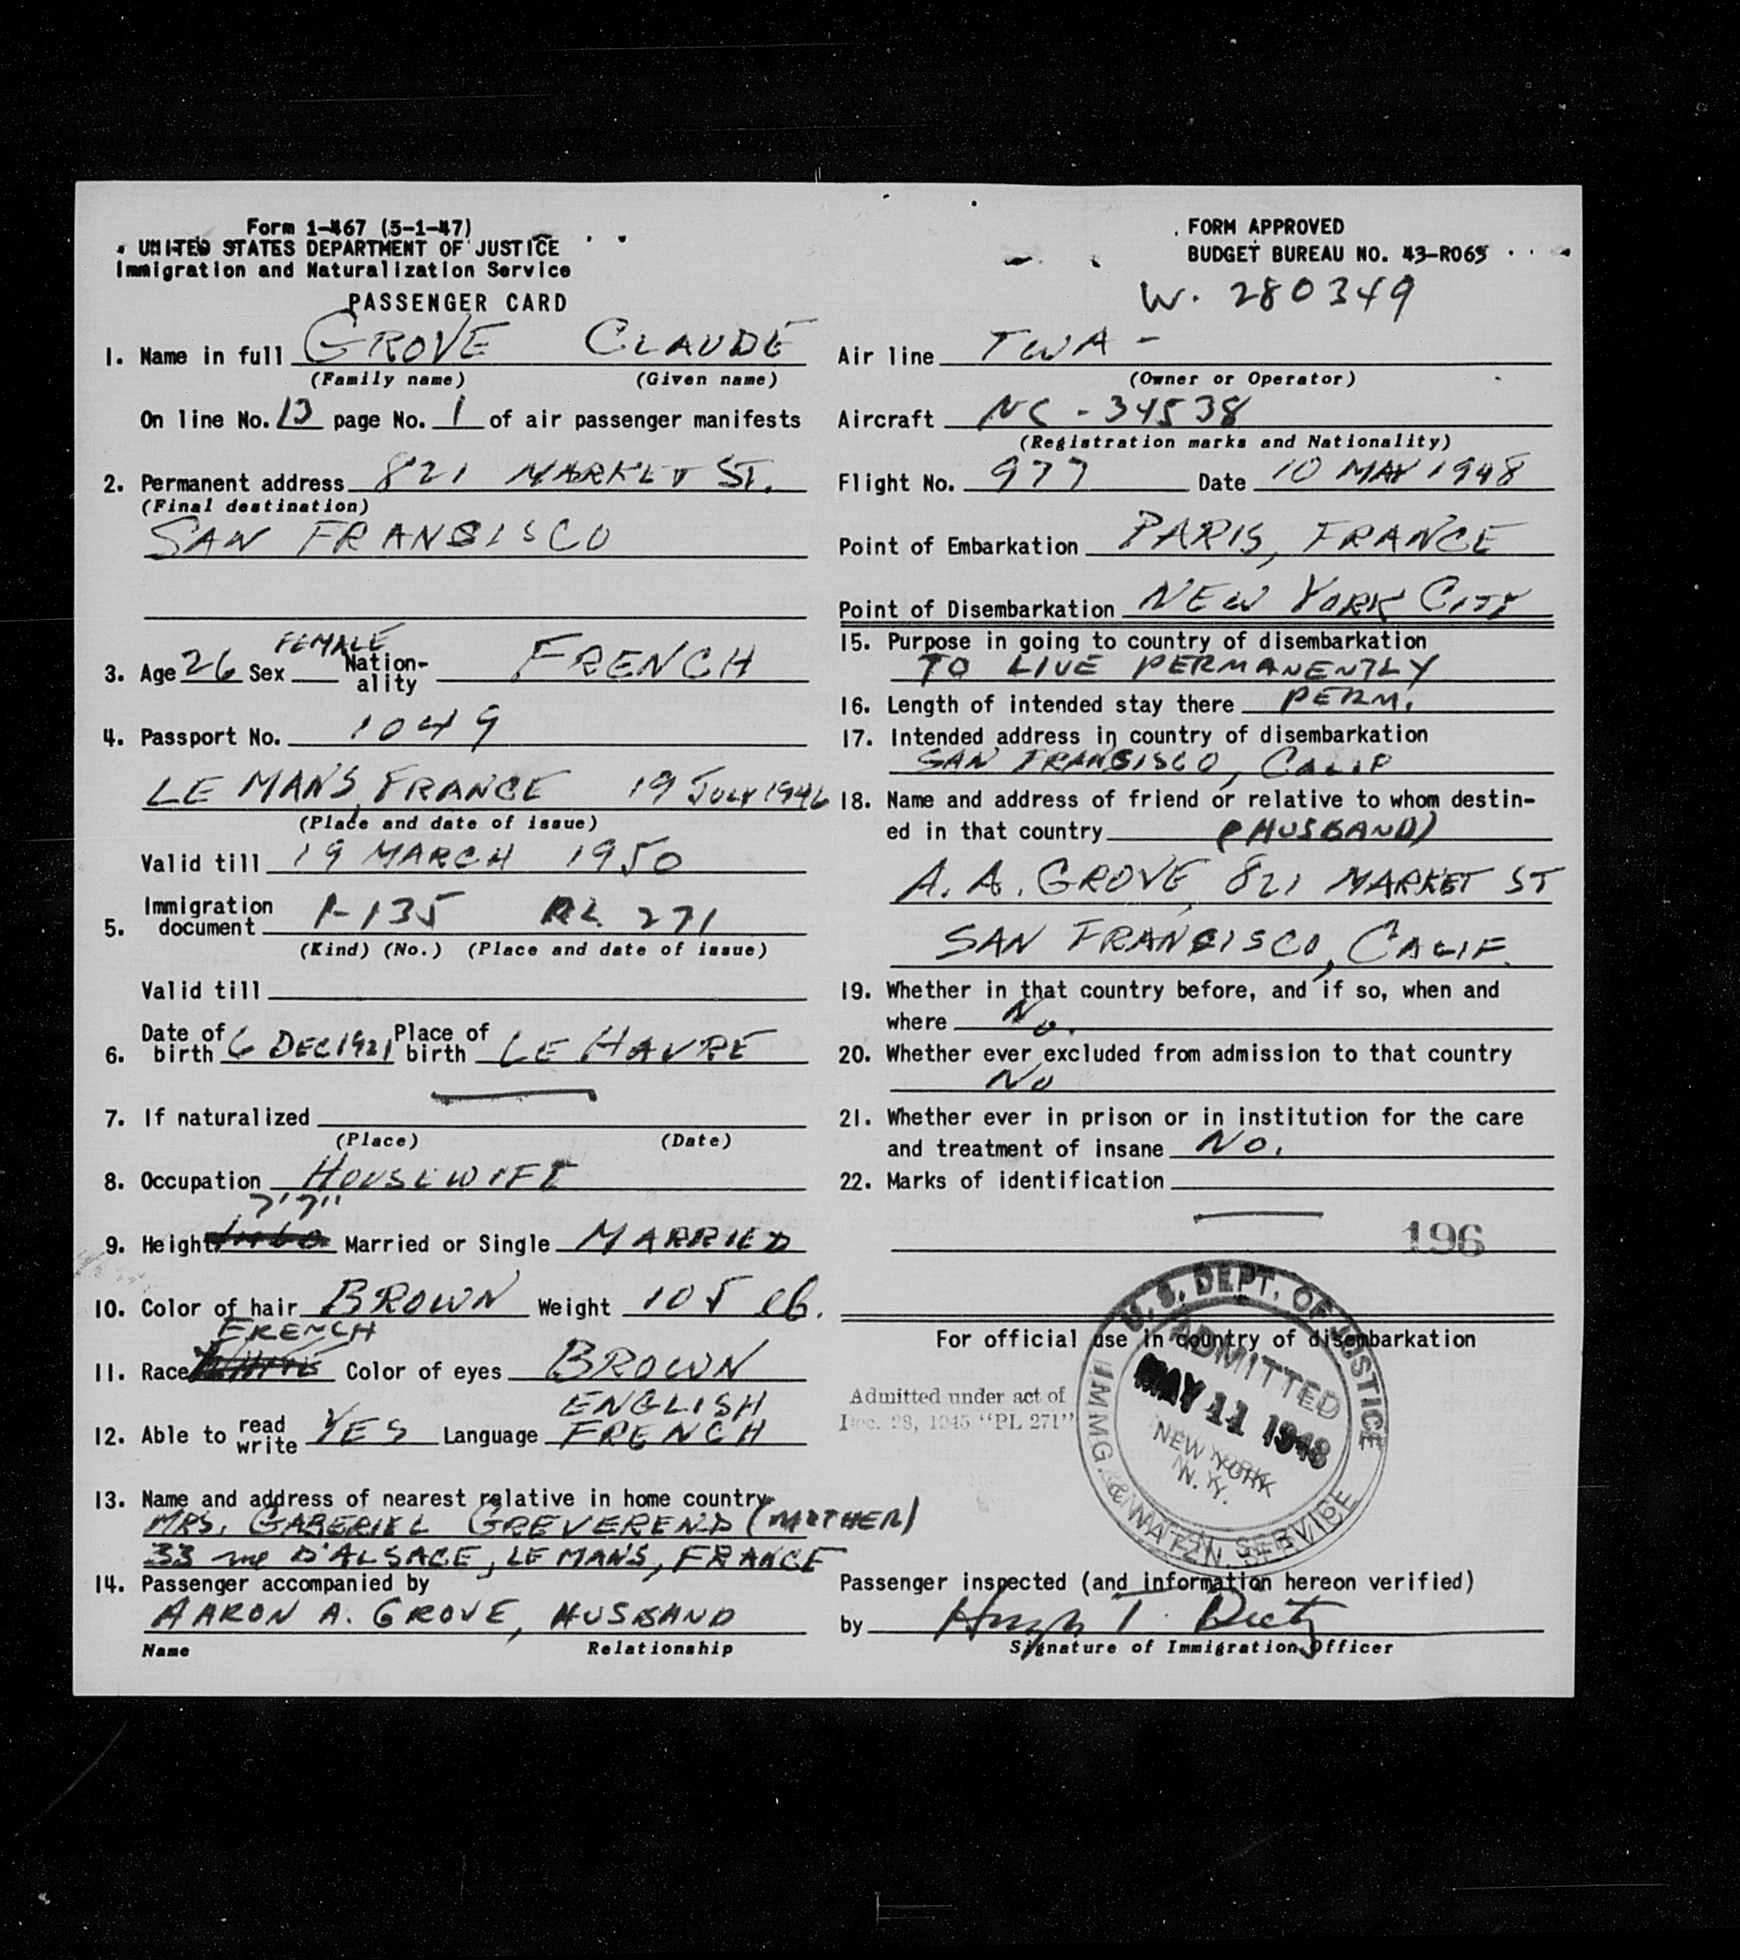 Form 1-467 (5-1-47)
UNITED STATES DEPARTMENT OF JUSTICE
Immigration and Naturalization Service
PASSENGER CARD
FORM APPROVED
BUDGET BUREAU NO. 43-R065
W. 280349
1. Name in full GROVE CLAUDE
(Family name) (Given name)
On line No. 13 page No. 1 of air passenger manifests
2. Permanent address 821 MARKET ST.
(Final destination)
SAN FRANCISCO
3. Age 26 Sex FEMALE Nation-ality FRENCH
4. Passport No. 1049
LE MANS, FRANCE 19 JULY 1946
(Place and date of issue)
Valid till 19 MARCH 1950
5. Immigration document 1-135 P.L. 271
(Kind) (No.) (Place and date of issue)
Valid till
6. Date of birth 6 DEC 1921 Place of birth LE HAVRE
7. If naturalized
(Place) (Date)
8. Occupation HOUSEWIFE
9. Height Married or Single MARRIED
10. Color of hair BROWN Weight 105 lb.
11. Race FRENCH Color of eyes BROWN
12. Able to read write YES Language ENGLISH FRENCH
13. Name and address of nearest relative in home country
MRS. GABERIEL GREVEREND (MOTHER)
33 rue D'ALSACE, LE MANS, FRANCE
14. Passenger accompanied by
AARON A. GROVE, HUSBAND
Name Relationship
Air line TWA -
(Owner or Operator)
Aircraft NC - 34538
(Registration marks and Nationality)
Flight No. 977 Date 10 MAY 1948
Point of Embarkation PARIS, FRANCE
Point of Disembarkation NEW YORK CITY
15. Purpose in going to country of disembarkation
TO LIVE PERMANENTLY
16. Length of intended stay there PERM.
17. Intended address in country of disembarkation
SAN FRANCISCO, CALIF
18. Name and address of friend or relative to whom destin-
ed in that country (HUSBAND)
A. A. GROVE, 821 MARKET ST
SAN FRANCISCO, CALIF.
19. Whether in that country before, and if so, when and
where No.
20. Whether ever excluded from admission to that country
No
21. Whether ever in prison or in institution for the care
and treatment of insane No.
22. Marks of identification
196
For official use in country of disembarkation
Admitted under act of
Dec. 28, 1945 "PL 271"
U. S. DEPT. OF JUSTICE
ADMITTED
MAY 11 1948
NEW YORK
N. Y.
IMMG. & NATZN. SERVICE
Passenger inspected (and information hereon verified)
by Hugh T. Dietz
Signature of Immigration Officer